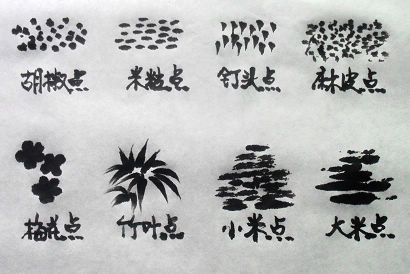 胡椒点 米粒点 钉头点 麻皮点
梅花点 竹叶点 小米点 大米点